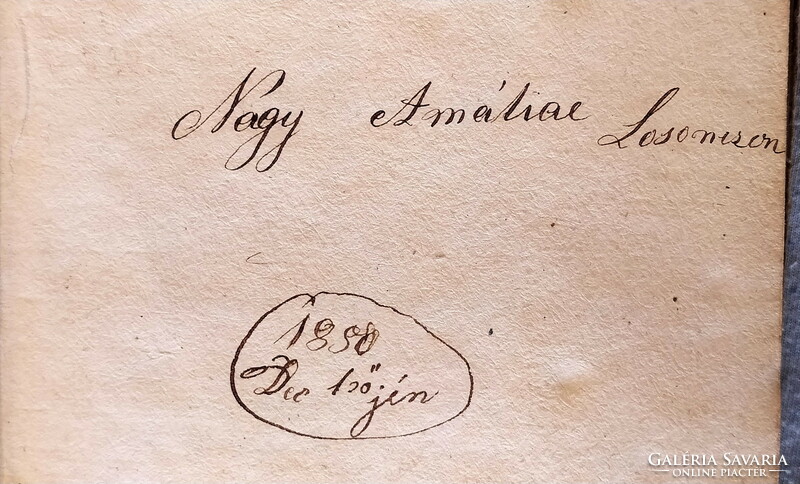 Nagy Amáliae Losonczon
1850
Dec 1ső jén
GALÉRIA SAVARIA
ONLINE PIACTÉR